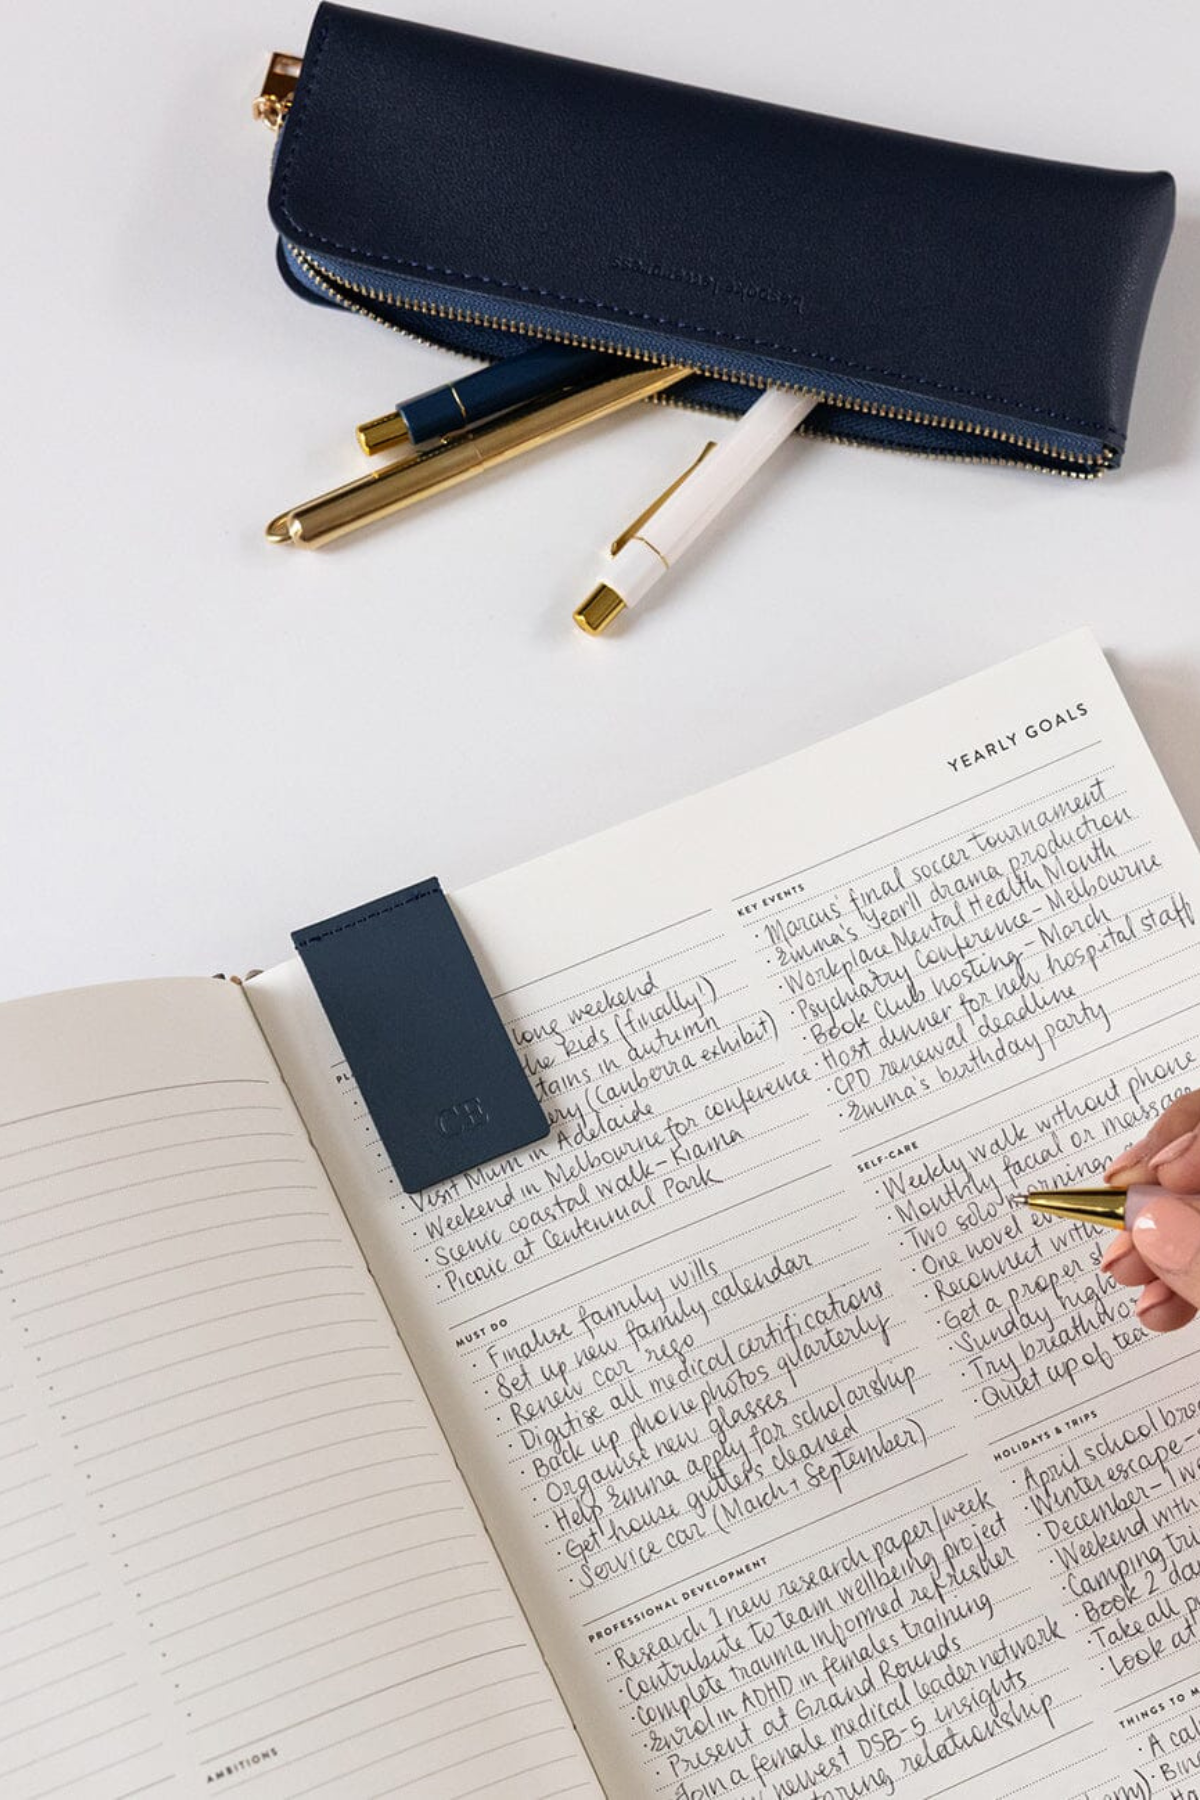 bespoke letterpress
YEARLY GOALS
CE
long weekend
he kids (finally!)
tains in autumn
ery (Canberra exhibit)
Visit Mum in Adelaide
· Weekend in Melbourne for conference
· Scenic coastal walk – Kiama
· Picnic at Centennial Park
MUST DO
· Finalise family wills
· Set up new family calendar
· Renew car rego
· Digitise all medical certifications
· Back up phone photos quarterly
· Organise new glasses
· Help Emma apply for scholarship
· Get house gutters cleaned
· Service car (March + September)
PROFESSIONAL DEVELOPMENT
· Research 1 new research paper/week
· Contribute to team wellbeing project
· Complete trauma informed refresher
· Enrol in ADHD in females training
· Present at Grand Rounds
· Join a female medical leader network
newest DSB-5 insights
relationship
KEY EVENTS
· Marcus' final soccer tournament
· Emma's Year 11 drama production
· Workplace Mental Health Month
· Psychiatry Conference – Melbourne
· Book Club hosting – March
· Host dinner for new hospital staff
· CPD renewal deadline
· Emma's birthday party
SELF-CARE
· Weekly walk without phone
· Monthly facial or massage
· Two solo mornings
· One novel ev
· Reconnect with
· Get a proper sl
· Sunday night
· Try breathwor
· Quiet cup of tea
HOLIDAYS & TRIPS
· April school brea
· Winter escape –
· December – 1 we
· Weekend with
· Camping tri
· Book 2 da
· Take all p
· Look at
THINGS TO M
· A cal
· Bin
AMBITIONS